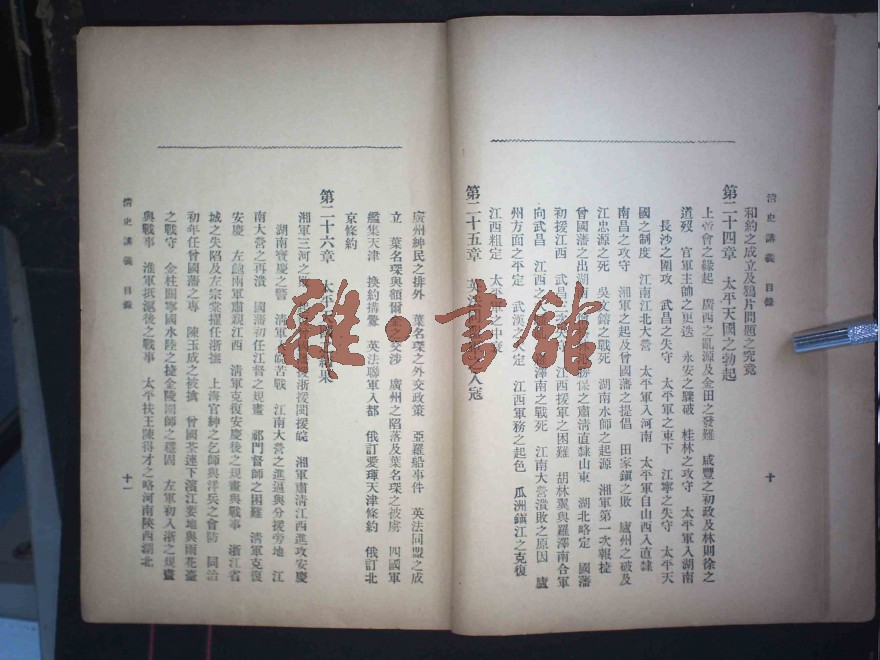 清史講義 目錄
十
和約之成立及鴉片問題之究竟
第二十四章 太平天國之勃起
上帝會之緣起 廣西之亂源及金田之發難 咸豐之初政及林則徐之
道歿 官軍主帥之更迭 永安之驟破 桂林之攻守 太平軍入湖南
長沙之圍攻 武昌之失守 太平軍之東下 江寧之失守 太平天
國之制度 江南江北大營 太平軍入河南 太平軍自山西入直隸
南昌之攻守 湘軍之起及曾國藩之提倡 田家鎮之敗 廬州之破及
江忠源之死 吳文鎔之戰死 湖南水師之起源 湘軍第一次報捷
曾國藩之出湖 保之肅清直隸山東 湖北略定 國藩
初援江西 武昌 失守 江西援軍之困難 胡林翼與羅澤南合軍
向武昌 江西 澤南之戰死 江南大營潰敗之原因 廬
州方面之平定 武漢 定 江西軍務之起色 瓜洲鎮江之克復
江西粗定 太平軍之中衰
第二十五章 英法 之入寇
廣州紳民之排外 葉名琛之外交政策 亞羅船事件 英法同盟之成
立 葉名琛與額爾金之交涉 廣州之陷落及葉名琛之被虜 四國軍
艦集天津 換約搆釁 英法聯軍入都 俄訂愛琿天津條約 俄訂北
京條約
第二十六章 太平天國 結果
湘軍三河之敗 浙援閩援皖 湘軍肅清江西進攻安慶
湖南寶慶之警 清軍 皖苦戰 江南大營之進逼與分援旁地 江
南大營之再潰 國藩初任江督之規畫 祁門督師之困難 清軍克復
安慶 左鮑兩軍肅親江西 清軍克復安慶後之規畫與戰事 浙江省
城之失陷及左宗棠擢任浙撫 上海官紳之乞師與洋兵之會防 同治
初年任曾國藩之專 陳玉成之被擒 曾國荃連下濱江要地與雨花臺
之戰守 金柱關寧國水陸之捷金陵圍師之穩固 左軍初入浙之規畫
與戰事 淮軍抵滬後之戰事 太平扶王陳得才之略河南陝西湖北
清史講義 目錄
十一
雜·書館